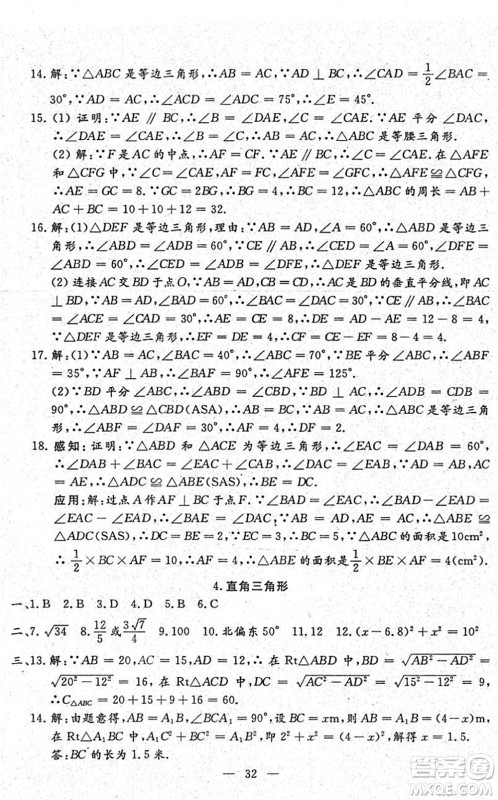 14. 解:∵△ABC 是等边三角形,∴AB = AC,∵AD ⊥ BC,∴∠CAD = 1/2∠BAC =
30°,∵AD = AC,∴∠ADC = 75°,∴∠E = 45°.
15. (1) 证明:∵AE ∥ BC,∴∠DAE = ∠B,∠CAE = ∠C. ∵AE 平分 ∠DAC,
∴∠DAE = ∠CAE,∴∠B = ∠C,∴△ABC 是等腰三角形.
(2) 解:∵F 是 AC 的中点,∴AF = CF. ∵AE ∥ BC,∴∠C = ∠CAE. 在 △AFE
和 △CFG 中,∵∠C = ∠FAE,AF = FC,∠AFE = ∠GFC,∴△AFE ≌ △CFG,
∴AE = GC = 8. ∵GC = 2BG,∴BG = 4,∴BC = 12,∴△ABC 的周长 = AB
+ AC + BC = 10 + 10 + 12 = 32.
16. 解:(1)△DEF 是等边三角形,理由:∵AB = AD,∠A = 60°,∴△ABD 是等边三
角形,∴∠ABD = ∠ADB = 60°. ∵CE ∥ AB,∴∠CED = ∠A = 60°,∠DFE =
∠ABD = 60°,∴∠CED = ∠ADB = ∠DFE,∴△DEF 是等边三角形.
(2) 连接 AC 交 BD 于点 O,∵AB = AD,CB = CD,∴AC 是 BD 的垂直平分线,即 AC
⊥ BD. ∵AB = AD,∠BAD = 60°,∴∠BAC = ∠DAC = 30°. ∵CE ∥ AB,∴∠BAC =
∠ACE = ∠CAD = 30°,∴AE = CE = 8,∴DE = AD − AE = 12 − 8 = 4,
∵△DEF 是等边三角形,∴EF = DE = 4,∴CF = CE − EF = 8 − 4 = 4.
17. 解:(1)∵AB = AC,∠BAC = 40°,∴∠ABC = 70°,∵BD 平分 ∠ABC,∴∠ABF
= 35°,∵AF = BF,∴∠BAF = ∠ABF = 35°,∴∠AFE = 125°.
(2)∵BD 平分 ∠ABC,∴∠ABD = ∠CBD,∵BD ⊥ AC,∴∠ADB = ∠CDB =
90°,∴△ABD ≌ △CBD(ASA),∴AB = BC,∵AB = AC,∴△ABC 是等边三角形,
∴∠AFE = ∠BAF + ∠ABF = 60°,∴EF = 1/2AF = 2.
18. 感知:证明:∵△ABD 和 △ACE 为等边三角形,∴∠EAC = ∠DAB = 60°,
∴∠DAB + ∠BAC = ∠EAC + ∠BAC,即 ∠DAC = ∠BAE. ∵AD = AB,AC =
AE,∴△ADC ≌ △ABE(SAS),∴BE = DC.
应用:解:过点 A 作 AF ⊥ BD 于点 F,∵∠BAD = ∠EAC = 90°,∴∠DAC = ∠BAE.
∵AD = AB,AC = AE,∴△ABE ≌ △ADC(SAS). ∵△ABE ≌
△ADC(SAS),∴△ABE 的面积 = △ADC 的面积,∴△ABE 的面积为 10cm²,
∴1/2 × BC × AF = 10,∴AF = 2,∴△ABE 的面积 = 1/2 × BE × AF = 4(cm²).
4. 直角三角形
一、1. B 2. B 3. D 4. D 5. B 6. C
二、7. √34 8. 12/5 或 3√7/4 9. 100 10. 北偏东 50° 11. 12 12. (x − 6.8)² + x² = 10²
三、13. 解:∵AB = 20,AC = 15,AD = 12,∴在 Rt△ABD 中,BD = √(AB² − AD²) =
√(20² − 12²) = 16,在 Rt△ADC 中,CD = √(AC² − AD²) = √(15² − 12²) = 9,
∴C△ABC = 20 + 15 + 16 + 9 = 60.
14. 解:由题意得,∠BCA₁ = 90°,设 BC = x m,则 AB = A₁B = (4 − x)m,在
Rt△A₁BC 中,A₁C² + BC² = A₁B²,即 2² + x² = (4 − x)²,解得 x = 1.5.
答:BC 的长为 1.5 米.
— 32 —